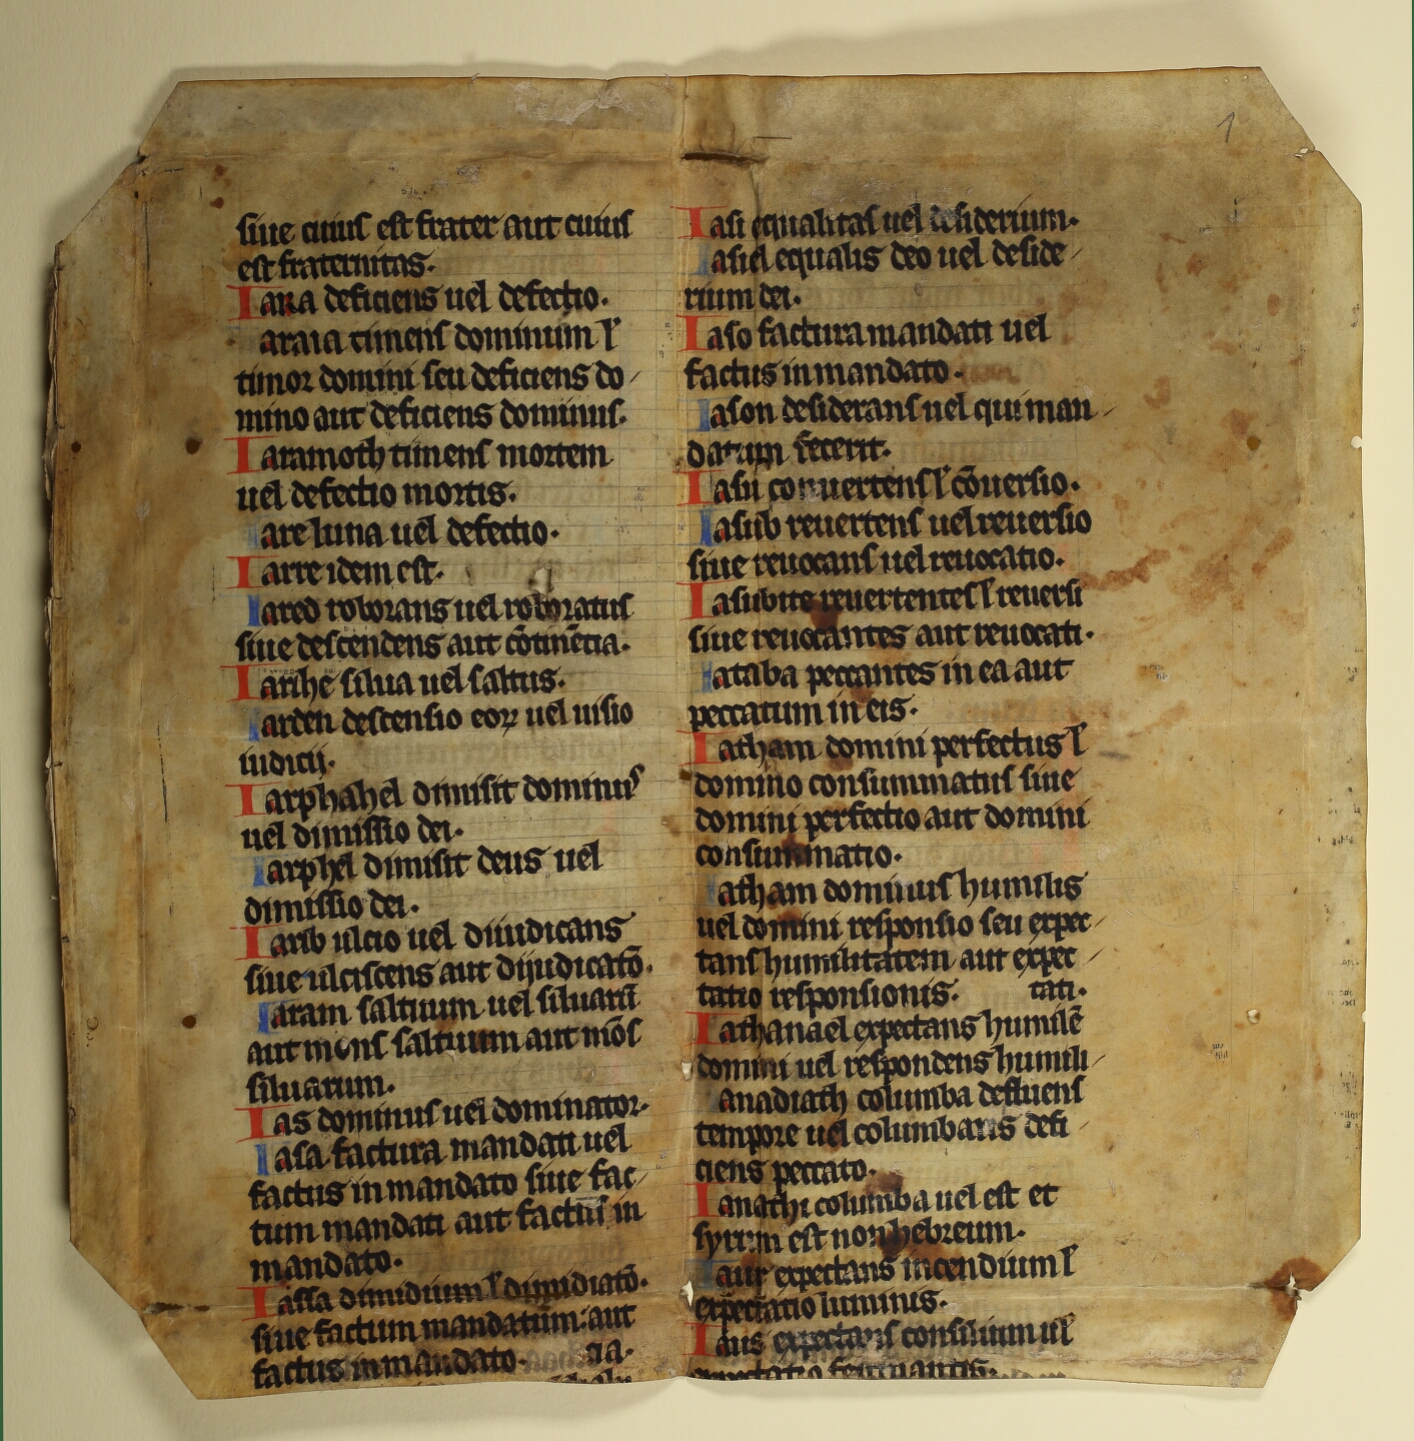 siue cuius est frater aut cuius
est fraternitas.
Iara deficiens uel defectio.
Iaraia timens dominum ł
timor domini seu deficiens do
mino aut deficiens dominus.
Iaramoth timens mortem
uel defectio mortis.
Iare luna uel defectio.
Iarre idem est.
Iared roborans uel roboratus
siue descendens aut cōtinētia.
Iarihe silua uel saltus.
Iarden descensio eoꝝ uel uisio
iudicij.
Iarphahel dimisit dominus
uel dimissio dei.
Iarphel dimisit deus uel
dimissio dei.
Iarib ulcio uel diiudicans
siue ulciscens aut dijudicatō.
Iaram saltuum uel siluarū
aut mons saltuum aut mōs
siluarum.
Ias dominus uel dominator.
Iasa factura mandati uel
factus in mandato siue fac
tum mandati aut factus in
mandato.
Iassa dimidium ł dimidiatō.
siue factum mandatum: aut
factus in mandato.
Iasi equalitas uel desiderium.
Iasiel equalis deo uel deside
rium dei.
Iaso factura mandati uel
factus in mandato.
Iason desiderans uel qui man
datum fecerit.
Iasu conuertens ł cōuersio.
Iasub reuertens uel reuersio
siue reuocans uel reuocatio.
Iasubite reuertentes ł reuersi
siue reuocantes aut reuocati.
Iataba peccantes in ea aut
peccatum in eis.
Iatham domini perfectus ł
domino consummatus siue
domini perfectio aut domini
consummatio.
Iatham dominus humilis
uel domini responsio seu expec
tans humilitatem aut expec
tatio responsionis. tati.
Iathanael expectans humilē
domini uel respondens humili
Ianadiath columba defluens
tempore uel columbaris defi
ciens peccato.
Ianathi columba uel est et
syrum est non hebreum.
Iaur expectans incendium ł
expectatio luminis.
Iaus expectans consilium uł
expectatio festinantis.
1